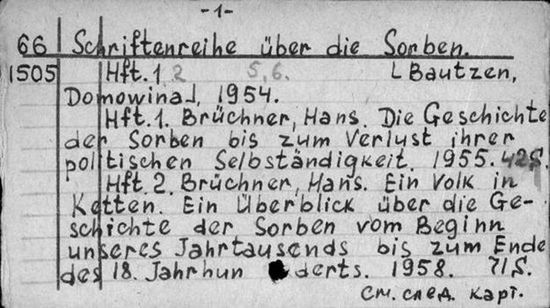 -1-
66 Schriftenreihe über die Sorben.
1505 Hft. 1, 2 5, 6. [Bautzen,
Domowina], 1954.
Hft. 1. Brüchner, Hans. Die Geschichte
der Sorben bis zum Verlust ihrer
politischen Selbständigkeit. 1955. 42S.
Hft. 2. Brüchner, Hans. Ein Volk in
Ketten. Ein Überblick über die Ge-
schichte der Sorben vom Beginn
unseres Jahrtausends bis zum Ende
des 18. Jahrhun derts. 1958. 71S.
См. след. карт.